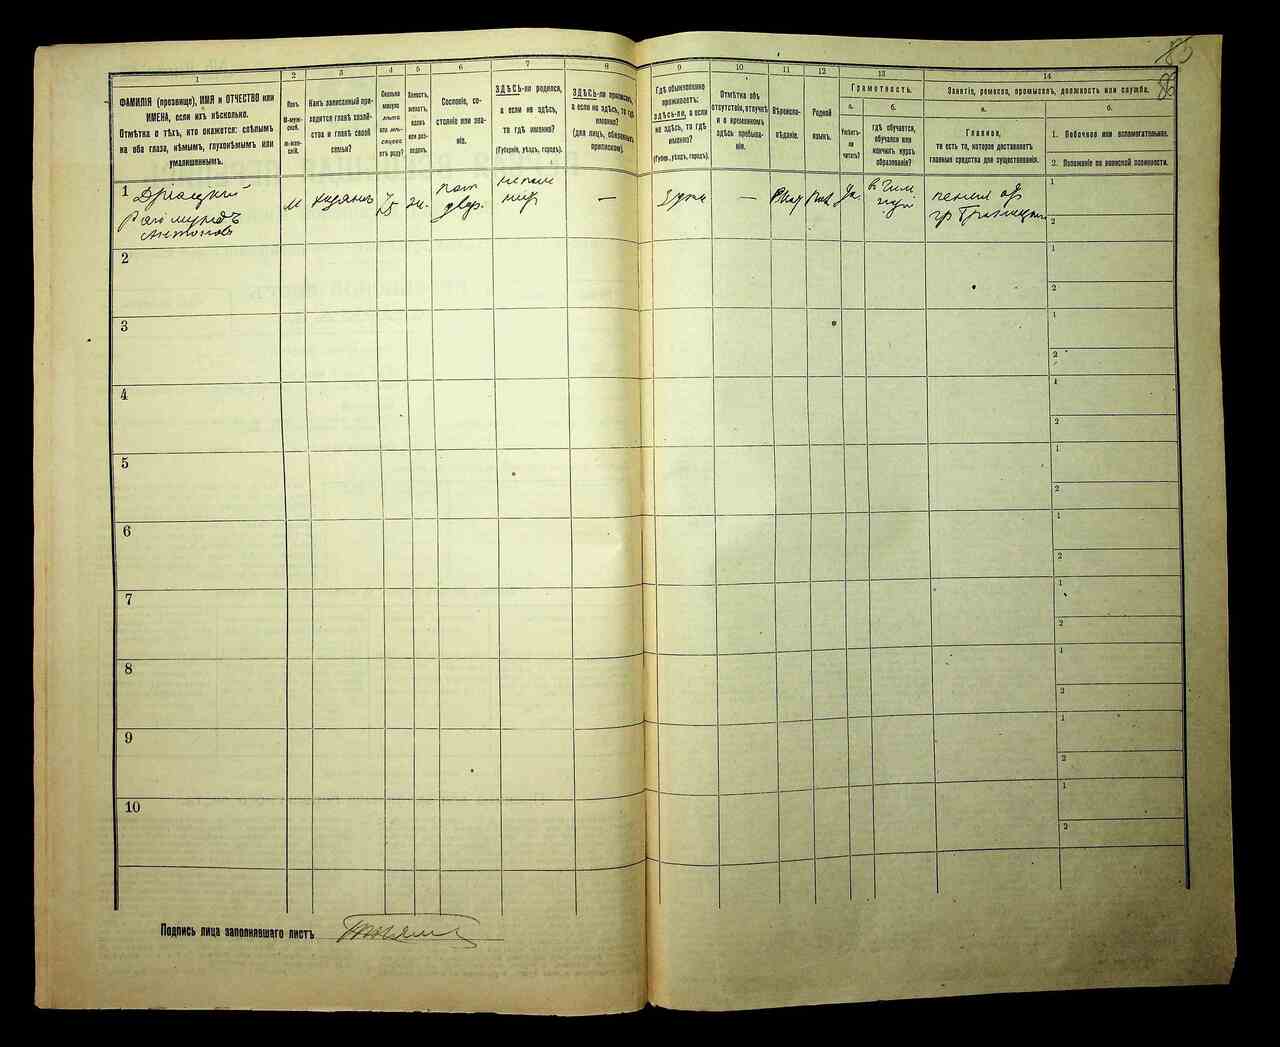 85
83
1
ФАМИЛІЯ (прозвище), ИМЯ и ОТЧЕСТВО или
ИМЕНА, если ихъ нѣсколько.
Отмѣтка о тѣхъ, кто окажется: слѣпымъ
на оба глаза, нѣмымъ, глухонѣмымъ или
умалишеннымъ.
2
Полъ.
М-муж-
ской.
Ж-жен-
скій.
3
Какъ записанный при-
ходится главѣ хозяй-
ства и главѣ своей
семьи?
4
Сколько
минуло
лѣтъ
или мѣ-
сяцевъ
отъ роду?
5
Холостъ,
женатъ,
вдовъ
или раз-
веденъ.
6
Сословіе, со-
стояніе или зва-
ніе.
7
ЗДѢСЬ-ли родился,
а если не здѣсь,
то гдѣ именно?
(Губернія, уѣздъ, городъ).
8
ЗДѢСЬ-ли приписанъ,
а если не здѣсь, то гдѣ
именно?
(для лицъ, обязанныхъ
припиской).
9
Гдѣ обыкновенно
проживаетъ:
ЗДѢСЬ-ли, а если
не здѣсь, то гдѣ
именно?
(Губер., уѣздъ, городъ).
10
Отмѣтка объ
отсутствіи, отлучкѣ
и о временномъ
здѣсь пребыва-
ніи.
11
Вѣроиспо-
вѣданіе.
12
Родной
языкъ.
13
Грамотность.
а.
Умѣетъ-
ли
читать?
б.
гдѣ обучается,
обучался или
кончилъ курсъ
образованія?
14
Занятіе, ремесло, промыселъ, должность или служба.
а.
Главное,
то есть то, которое доставляетъ
главныя средства для существованія.
б.
1. Побочное или вспомогательное.
2. Положеніе по воинской повинности.
1
Дріацкій
Антоновъ
м
хозяинъ
75
пот
двор.
—
—
Да.
в Гим
1
2
2
1
2
3
1
2
4
1
2
5
1
2
6
1
2
7
1
2
8
1
2
9
1
2
10
1
2
Подпись лица заполнявшаго листъ